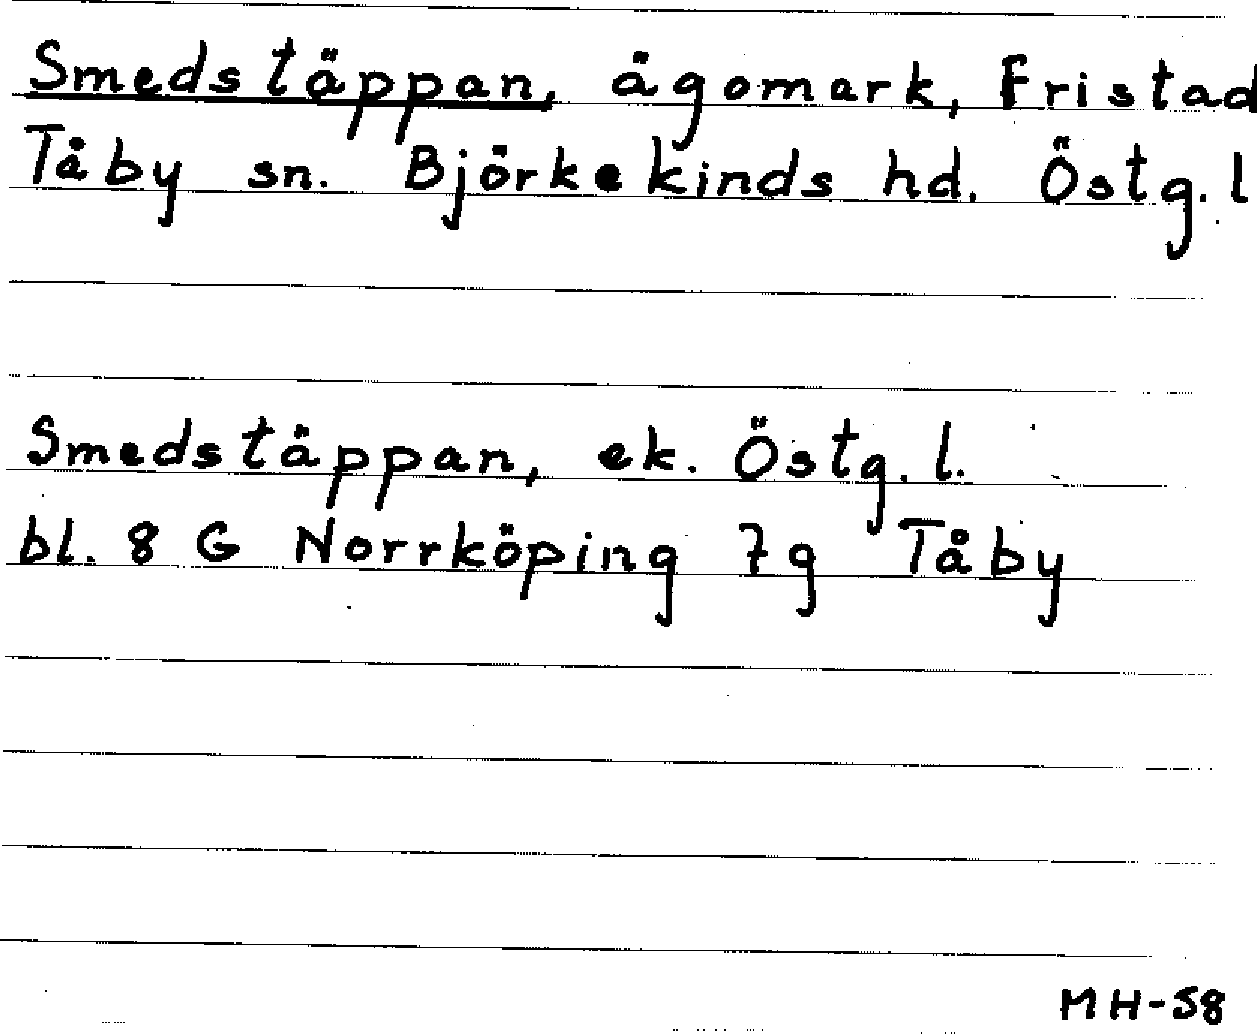 Smedstäppan, ägomark, Fristad
Tåby sn. Björkekinds hd. Östg. l
Smedstäppan, ek. Östg. l.
bl. 8 G Norrköping 7g Tåby
MH-58